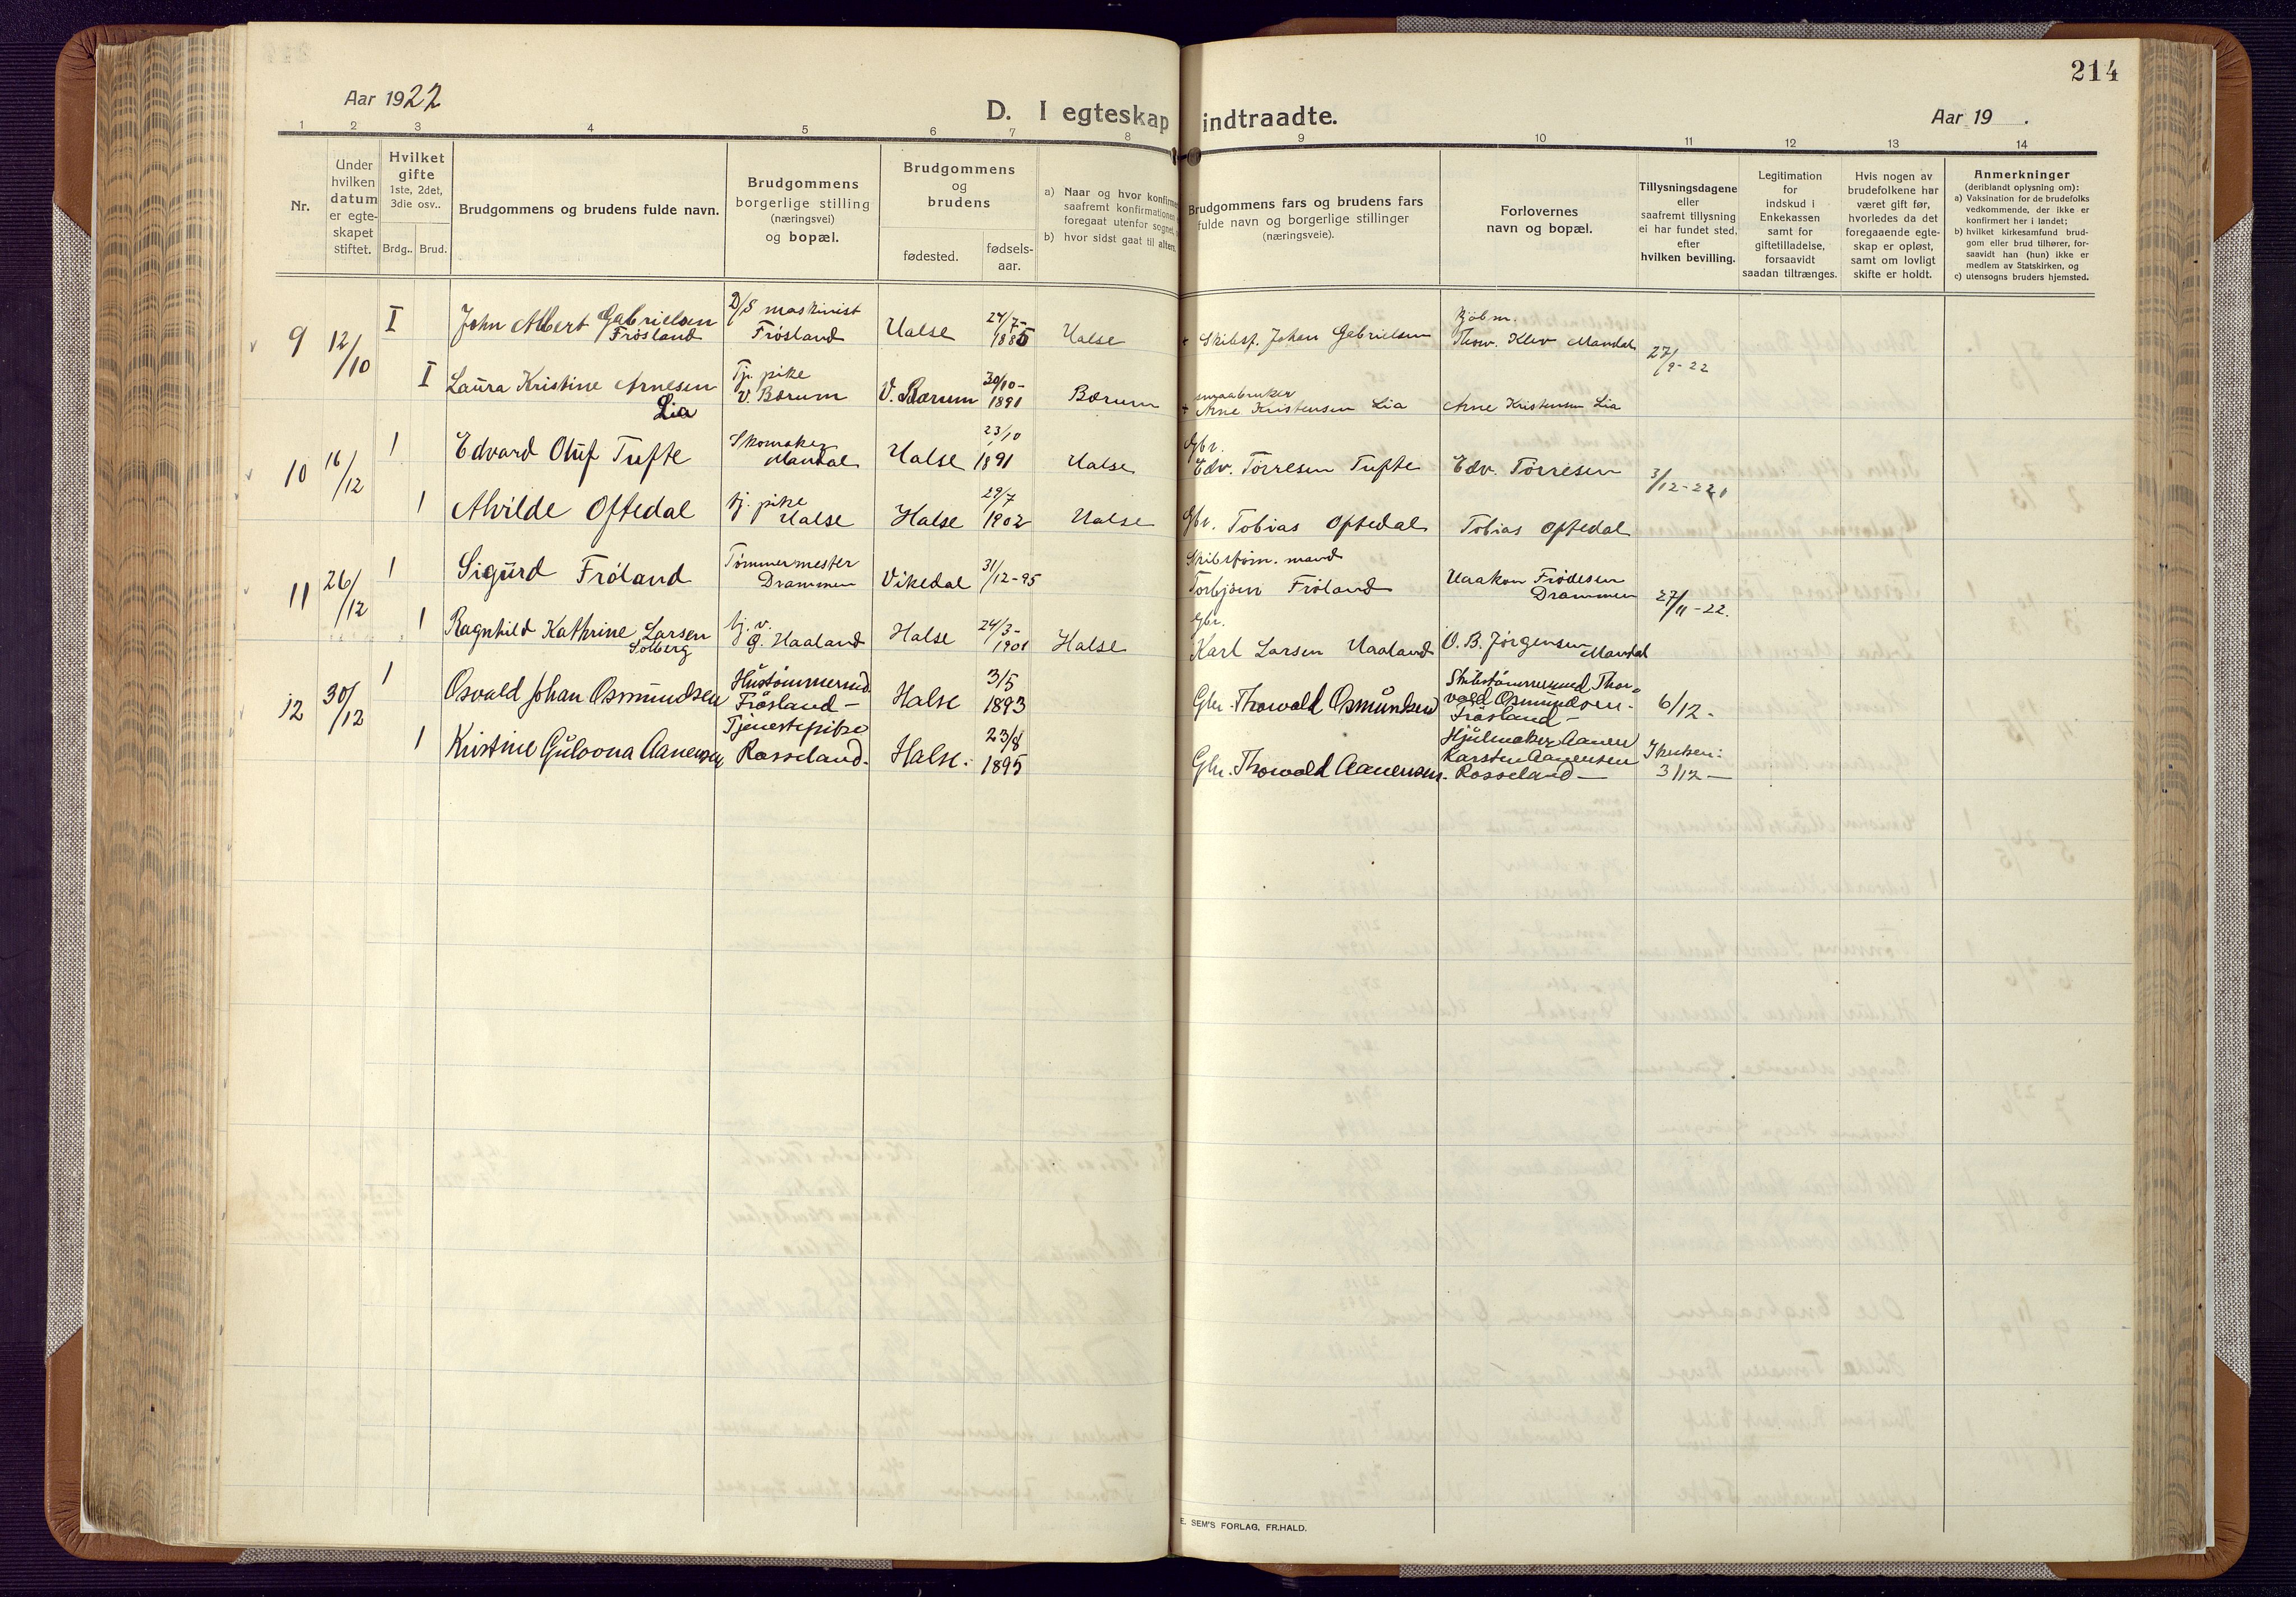 214
Aar 1922
Aar 19 .
D. I egteskap indtraadte.
1 2 3 4 5 6 7 8 9 10 11 12 13 14
Nr.
Under
hvilken
datum
er egte-
skapet
stiftet.
Hvilket
gifte
1ste, 2det,
3die osv..
Brdg..
Brud.
Brudgommens og brudens fulde navn.
Brudgommens
borgerlige stilling
(næringsvei)
og bopæl.
Brudgommens
og
brudens
fødested.
fødsels-
aar.
a) Naar og hvor konfirme
saafremt konfirmationen
foregaat utenfor sognet,
b) hvor sidst gaat til alters.
Brudgommens fars og brudens fars
fulde navn og borgerlige stillinger
(næringsveie).
Forlovernes
navn og bopæl.
Tillysningsdagene
eller
saafremt tillysning
ei har fundet sted,
efter
hvilken bevilling.
Legitimation
for
indskud i
Enkekassen
samt for
giftetilladelse,
forsaavidt
saadan tiltrænges.
Hvis nogen av
brudefolkene har
været gift før,
hvorledes da det
foregaaende egte-
skap er opløst,
samt om lovligt
skifte er holdt.
Anmerkninger
(deriblandt oplysning om):
a) Vaksination for de brudefolks
vedkommende, der ikke er
konfirmert her i landet;
b) hvilket kirkesamfund brud-
gom eller brud tilhører, for-
saavidt han (hun) ikke er
medlem av Statskirken, og
c) utensogns bruders hjemsted.
9
12/10
I
John Albert Gabrielsen
Frøsland
D/S maskinist
Frøsland
Halse
24/7-
1885
Halse
+ Skibsf. Johan Gabrielsen
Kjøbm.
Thorv. Klev Mandal
27/9-22
I
Laura Kristine Arnesen
Lia
Tj. pike
V. Bærum
V. Bærum
30/10-
1891
Bærum
smaabruker
+ Arne Kristensen Lia
Arne Kristensen Lia
10
16/12
1
Edvard Oluf Tufte
Skomaker
Mandal
Halse
23/10
1891
Halse
Gbr.
Edv. Tørresen Tufte
Edv. Tørresen
3/12-22
1
Alvilde Oftedal
tj. pike
Halse
Halse
29/7
1902
Halse
Gbr. Tobias Oftedal
Tobias Oftedal
11
26/12
1
Sigurd Frøland
Tømmermester
Drammen
Vikedal
31/12-95
Skibstøm. mand
Torbjørn Frøland
Haakon Frødesen
Drammen
27/11-22.
1
Ragnhild Kathrine Larsen
Solberg
tj. v.
G. Haaland
Halse
24/3-
1901
Halse
Gbr.
Karl Larsen Haaland
O. B. Jørgensen
Mandal
12
30/12
1
Osvald Johan Osmundsen
Hustømmermd.
Frøsland -
Halse
3/5
1893
Gbr. Thorvald Osmundsen
Skibstømmermd Thor-
vald Osmundsen -
Frøsland -
6/12 -
1
Kristine Gulovna Aanensen
Tjenestepike
Rosseland.
Halse.
23/8
1895
Gbr. Thorvald Aanensen.
Hjulmaker Aanen
Karsten Aanensen
Rosseland -
I kirken:
3/12 -
E. SEM'S FORLAG, FR.HALD.